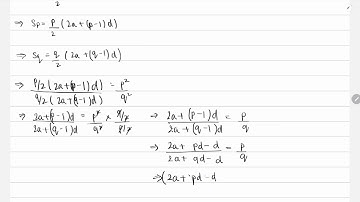 2
⇒ Sp = p/2 (2a + (p-1)d)
⇒ Sq = q/2 (2a + (q-1)d)
⇒ p/2 (2a + (p-1)d) / q/2 (2a + (q-1)d) = p²/q²
⇒ 2a + (p-1)d / 2a + (q-1)d = p²/q² × q/2 / p/2 → 2a + (p-1)d / 2a + (q-1)d = p/q
→ 2a + pd - d / 2a + qd - d = p/q
⇒ (2a + pd - d